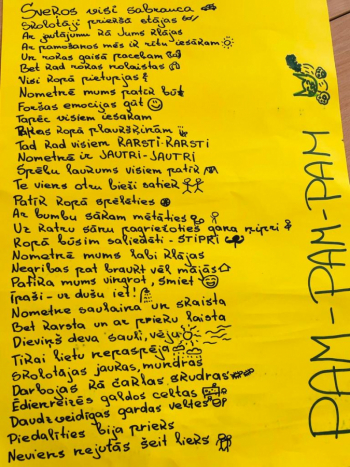 Sveros visi sabrauca
Skolotāji priekšā stājas
Ar jautājumu Kā Jums klājas
Ar pamošanos mēs ir rītu iesākam
Un rokas gaisā paceļam
Bet kad rokas nolaistas
Visi kopā pietupjas
Nometnē mums patīk būt
Foršas emocijas gūt
Tāpēc visiem iesakam
kopā plaukšķinām
Tad kad visiem KARSTI-KARSTI
Nometnē ir JAUTRI-JAUTRI
Spēļu laukums visiem patīk
Te viens otru bieži satiek
Patīk kopā spēlēties
Ar bumbu sākam mētāties
Uz katru sānu pagriežoties
Kopā būsim saliedēti - STIPRI
Nometnē mums labi klājas
Negribas pat braukt vēl mājās
Patika mums vingrot, smiet
Īpaši - uz dušu iet!
Nometne saulaina un skaista
Bet karsta un ar prieku laista
Dieviņš deva sauli, vēju
Tikai lietu nepaspēja
Skolotājas jaukas, mundras
Darbojas kā čaklas skudras
Ēdienreizēs galdos celtas
Daudzveidīgas gardas veltes
Piedalīties bija prieks
Neviens nejutās šeit lieks
PAM-PAM-PAM